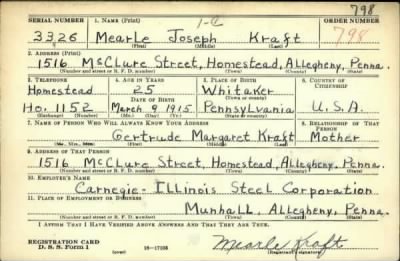 798
SERIAL NUMBER 1. NAME (Print) ORDER NUMBER
3326 Mearle Joseph Kraft 798
(First) (Middle) (Last)
2. ADDRESS (Print)
1516 McClure Street, Homestead, Allegheny, Penna.
(Number and street or R. F. D. number) (Town) (County) (State)
3. TELEPHONE 4. AGE IN YEARS 5. PLACE OF BIRTH 6. COUNTRY OF CITIZENSHIP
Homestead 25 Whitaker
DATE OF BIRTH (Town or county)
Ho. 1152 March 9 1915 Pennsylvania U.S.A.
(Exchange) (Number) (Mo.) (Day) (Yr.) (State or country)
7. NAME OF PERSON WHO WILL ALWAYS KNOW YOUR ADDRESS 8. RELATIONSHIP OF THAT PERSON
Gertrude Margaret Kraft Mother
(Mr., Mrs., Miss) (First) (Middle) (Last)
9. ADDRESS OF THAT PERSON
1516 McClure Street, Homestead, Allegheny, Penna.
(Number and street or R. F. D. number) (Town) (County) (State)
10. EMPLOYER'S NAME
Carnegie-Illinois Steel Corporation
11. PLACE OF EMPLOYMENT OR BUSINESS
Munhall, Allegheny, Penna.
(Number and street or R. F. D. number) (Town) (County) (State)
I AFFIRM THAT I HAVE VERIFIED ABOVE ANSWERS AND THAT THEY ARE TRUE.
REGISTRATION CARD
D. S. S. Form 1 (over) 16-17105 Mearle Kraft
(Registrant's signature)